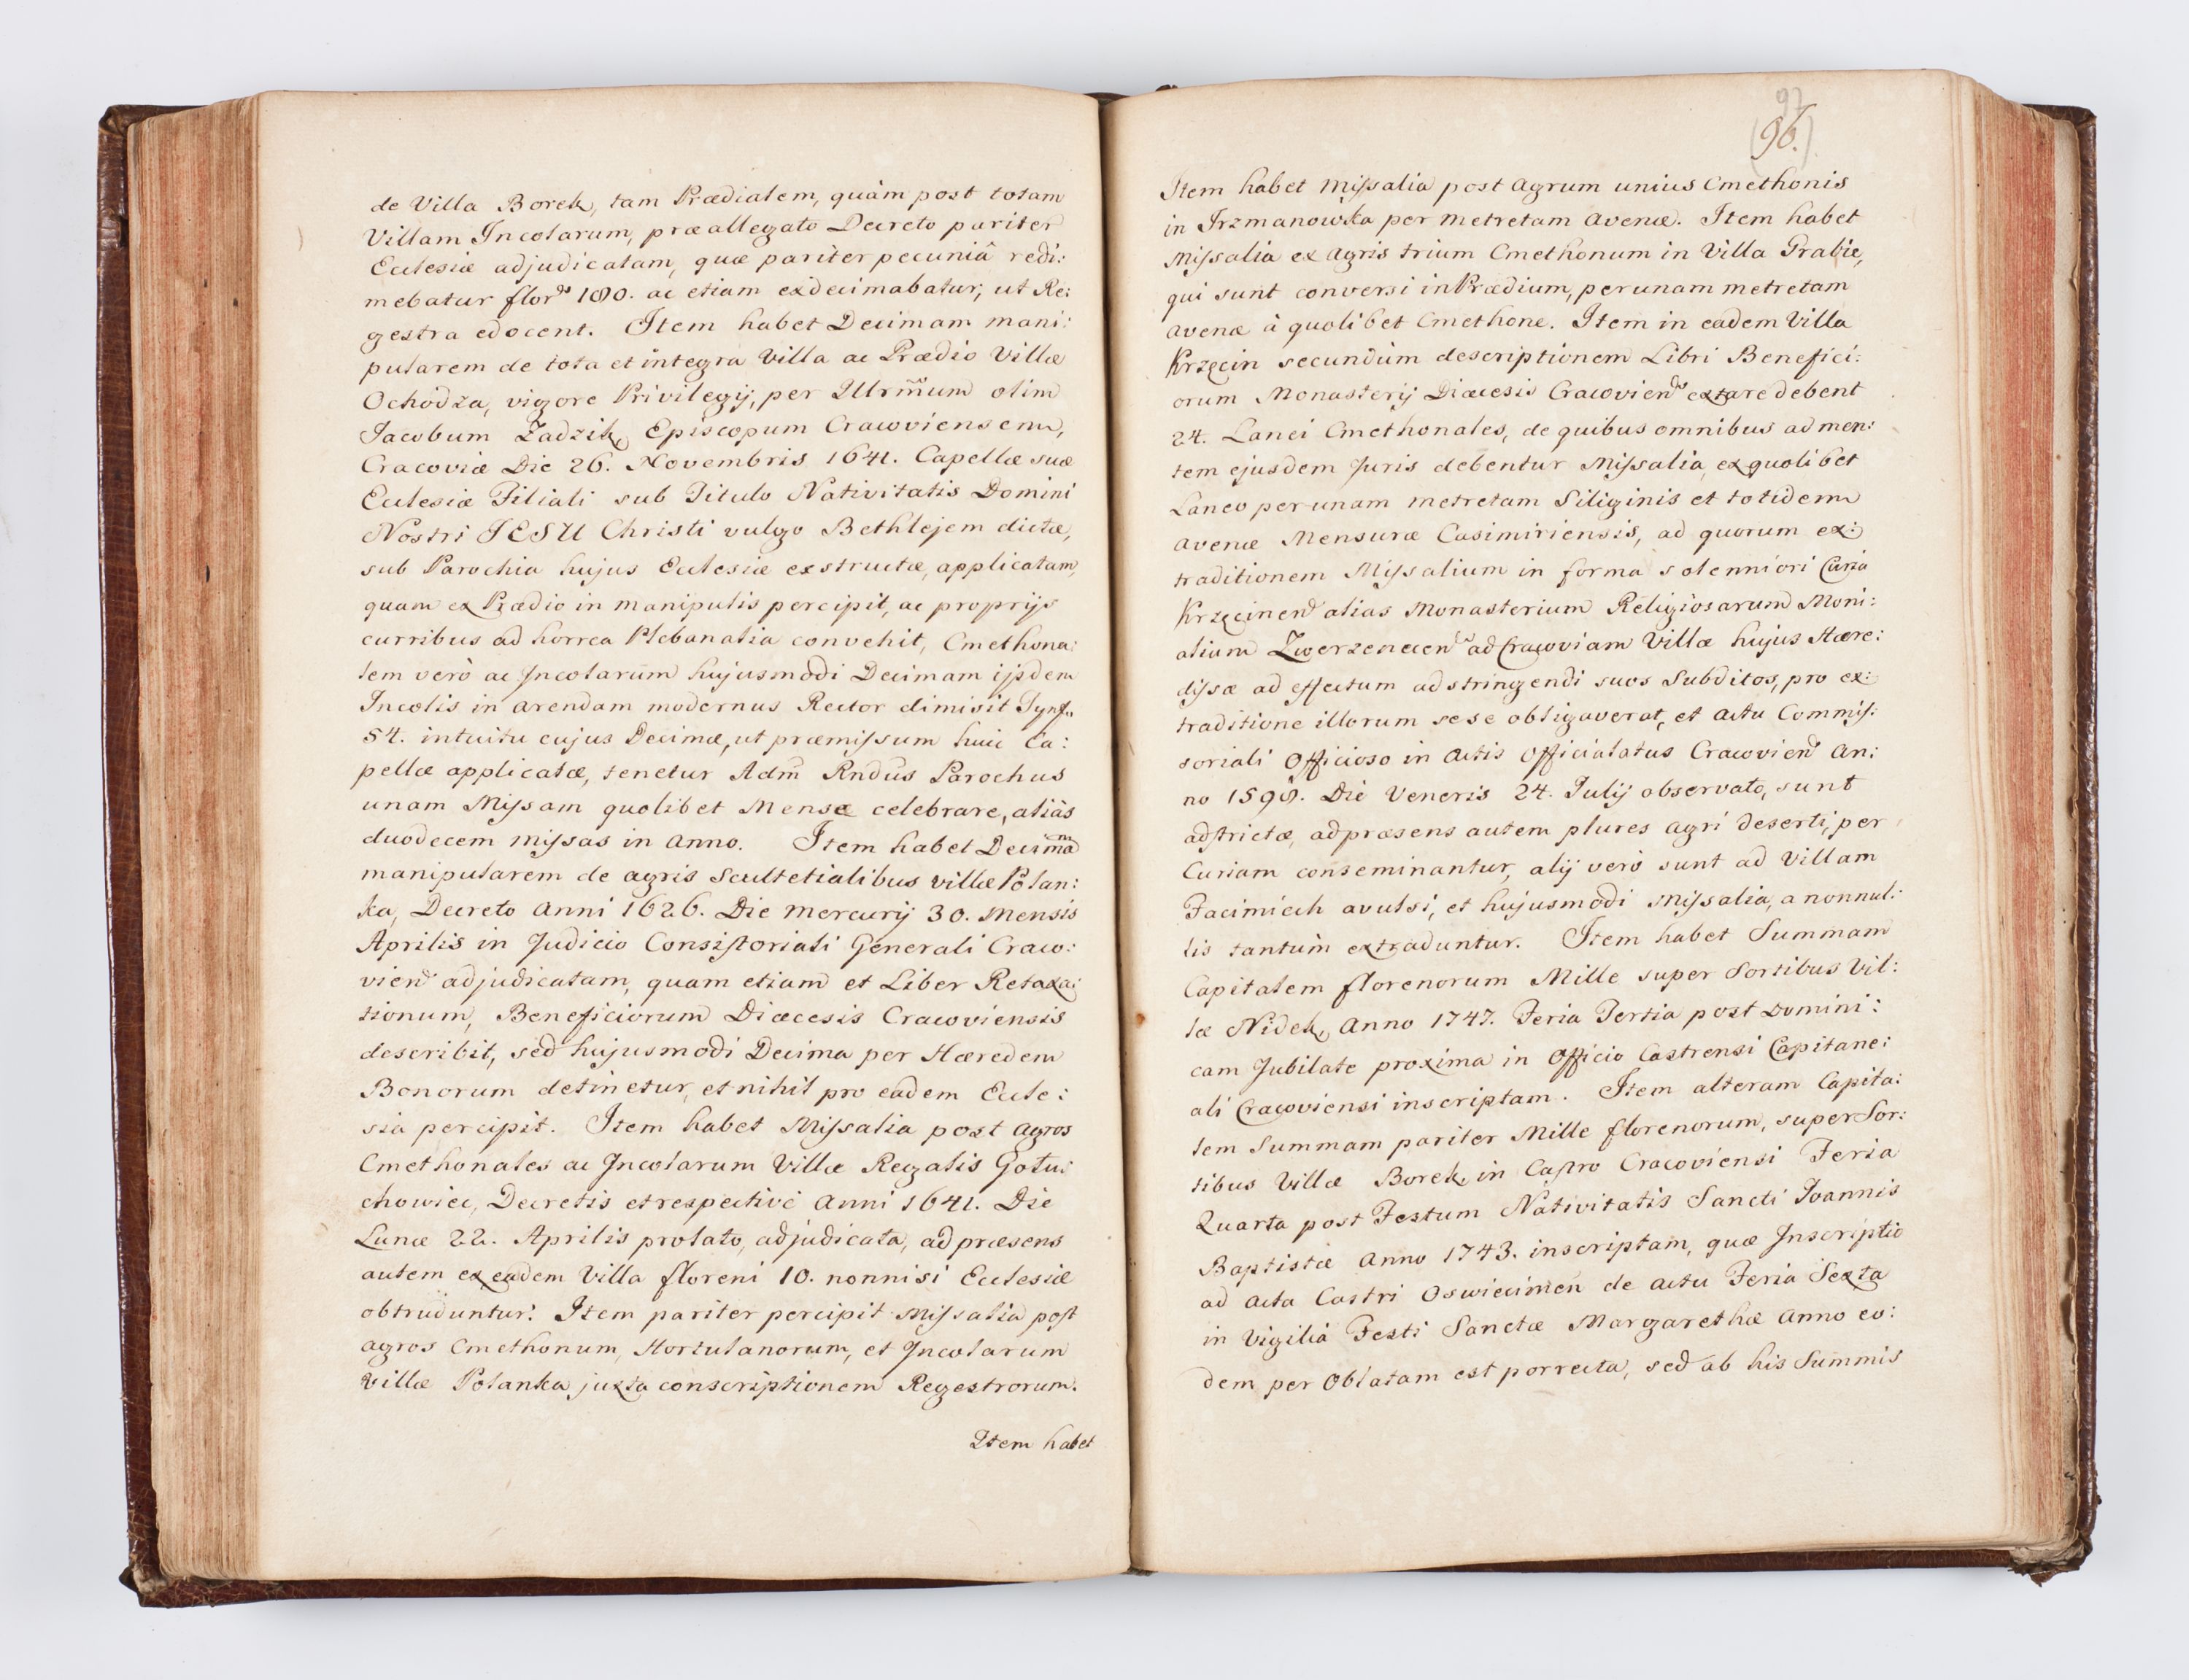 de Villa Borek, tam Prædialem, quàm post totam
Villam Incolarum, præallegato Decreto pariter
Ecclesiæ adjudicatam, quæ pariter pecuniâ redi:
mebatur flor. 180. ac etiam exdecimabatur, ut Re:
gestra edocent. Item habet Decimam mani:
pularem de tota et integra Villa ac Prædio Villæ
Ochodza, vigore Privilegij, per Illrm̃um olim
Jacobum Zadzik, Episcopum Cracoviensem,
Cracoviæ Die 26. Novembris 1641. Capellæ suæ
Ecclesiæ Filiali sub Titulo Nativitatis Domini
Nostri JESU Christi vulgo Bethlejem dictæ,
sub Parochia hujus Ecclesiæ exstructæ, applicatam,
quam ex Prædio in manipulis percipit, ac proprijs
curribus ad horrea Plebanalia convehit, Cmethona:
lem verò ac Incolarum hujusmodi Decimam ijsdem
Incolis in arendam modernus Rector dimisit Tynf.
54. intuitu cujus Decimæ, ut præmissum huic Ca:
pellæ applicatæ, tenetur Adm̃ Rndus Parochus
unam Missam quolibet Mense celebrare, aliàs
duodecem missas in anno. Item habet Decimam
manipularem de agris Scultetialibus villæ Polan:
ka, Decreto Anni 1626. Die Mercurij 30. Mensis
Aprilis in Judicio Consistoriali Generali Craco:
vien adjudicatam, quam etiam et Liber Retaxa:
tionum, Beneficiorum Diæcesis Cracoviensis
describit, sed hujusmodi Decima per Hæredem
Bonorum detinetur, et nihil pro eadem Eccle:
sia percipit. Item habet Missalia post agros
Cmethonales ac Incolarum Villæ Regalis Golu:
chowiec, Decretis et respectivè Anni 1641. Die
Lunæ 22. Aprilis prolato, adjudicata, ad præsens
autem ex eadem Villa floreni 10. nonnisi Ecclesiæ
obtruduntur. Item pariter percipit Missalia post
agros Cmethonum, Hortulanorum, et Incolarum
Villæ Polanka juxta conscriptionem Regestrorum.
Item habet
97
(96.)
Item habet Missalia post Agrum unius Cmethonis
in Trzmanowska per metretam avenæ. Item habet
Missalia ex agris trium Cmethonum in Villa Grabie,
qui sunt conversi in Prædium, per unam metretam
avenæ à quolibet Cmethone. Item in eadem Villa
Krzęcin secundùm descriptionem Libri Benefici:
orum Monasterij Diæcesis Cracovien extare debent
24. Lanei Cmethonales, de quibus omnibus ad men:
tem ejusdem Juris debentur Missalia, ex quolibet
Laneo per unam metretam Siliginis et totidem
avenæ Mensuræ Casimiriensis, ad quorum ex:
traditionem Missalium in forma solenniori Curia
Krzęcinen alias Monasterium Religiosarum Moni:
alium Zwerzenecen ad Cracoviam Villæ hujus Hære:
dissæ ad effectum adstringendi suos Subditos, pro ex:
traditione illorum sese obligaverat, et actu Commis:
soriali Officioso in Actis Officialatus Cracovien An:
no 1598. Die Veneris 24. Julij observato, sunt
adstrictæ, ad præsens autem plures agri deserti, per
Curiam conseminantur, alij verò sunt ad Villam
Facimiech avulsi, et hujusmodi Missalia, a nonnul:
lis tantùm extraduntur. Item habet Summam
Capitalem florenorum Mille super Sortibus Vil:
læ Nidek, Anno 1747. Feria Tertia post Domini:
cam Jubilate proxima in Officio Castrensi Capitane:
ali Cracoviensi inscriptam. Item alteram Capita:
lem Summam pariter Mille florenorum, super Sor:
tibus Villæ Borek, in Castro Cracoviensi Feria
Quarta post Festum Nativitatis Sancti Joannis
Baptistæ Anno 1743. inscriptam, quæ Inscriptio
ad Acta Castri Oswiecimen de actu Feria Sexta
in Vigilia Festi Sanctæ Margarethæ Anno eo:
dem per Oblatam est porrecta, sed ab his Summis